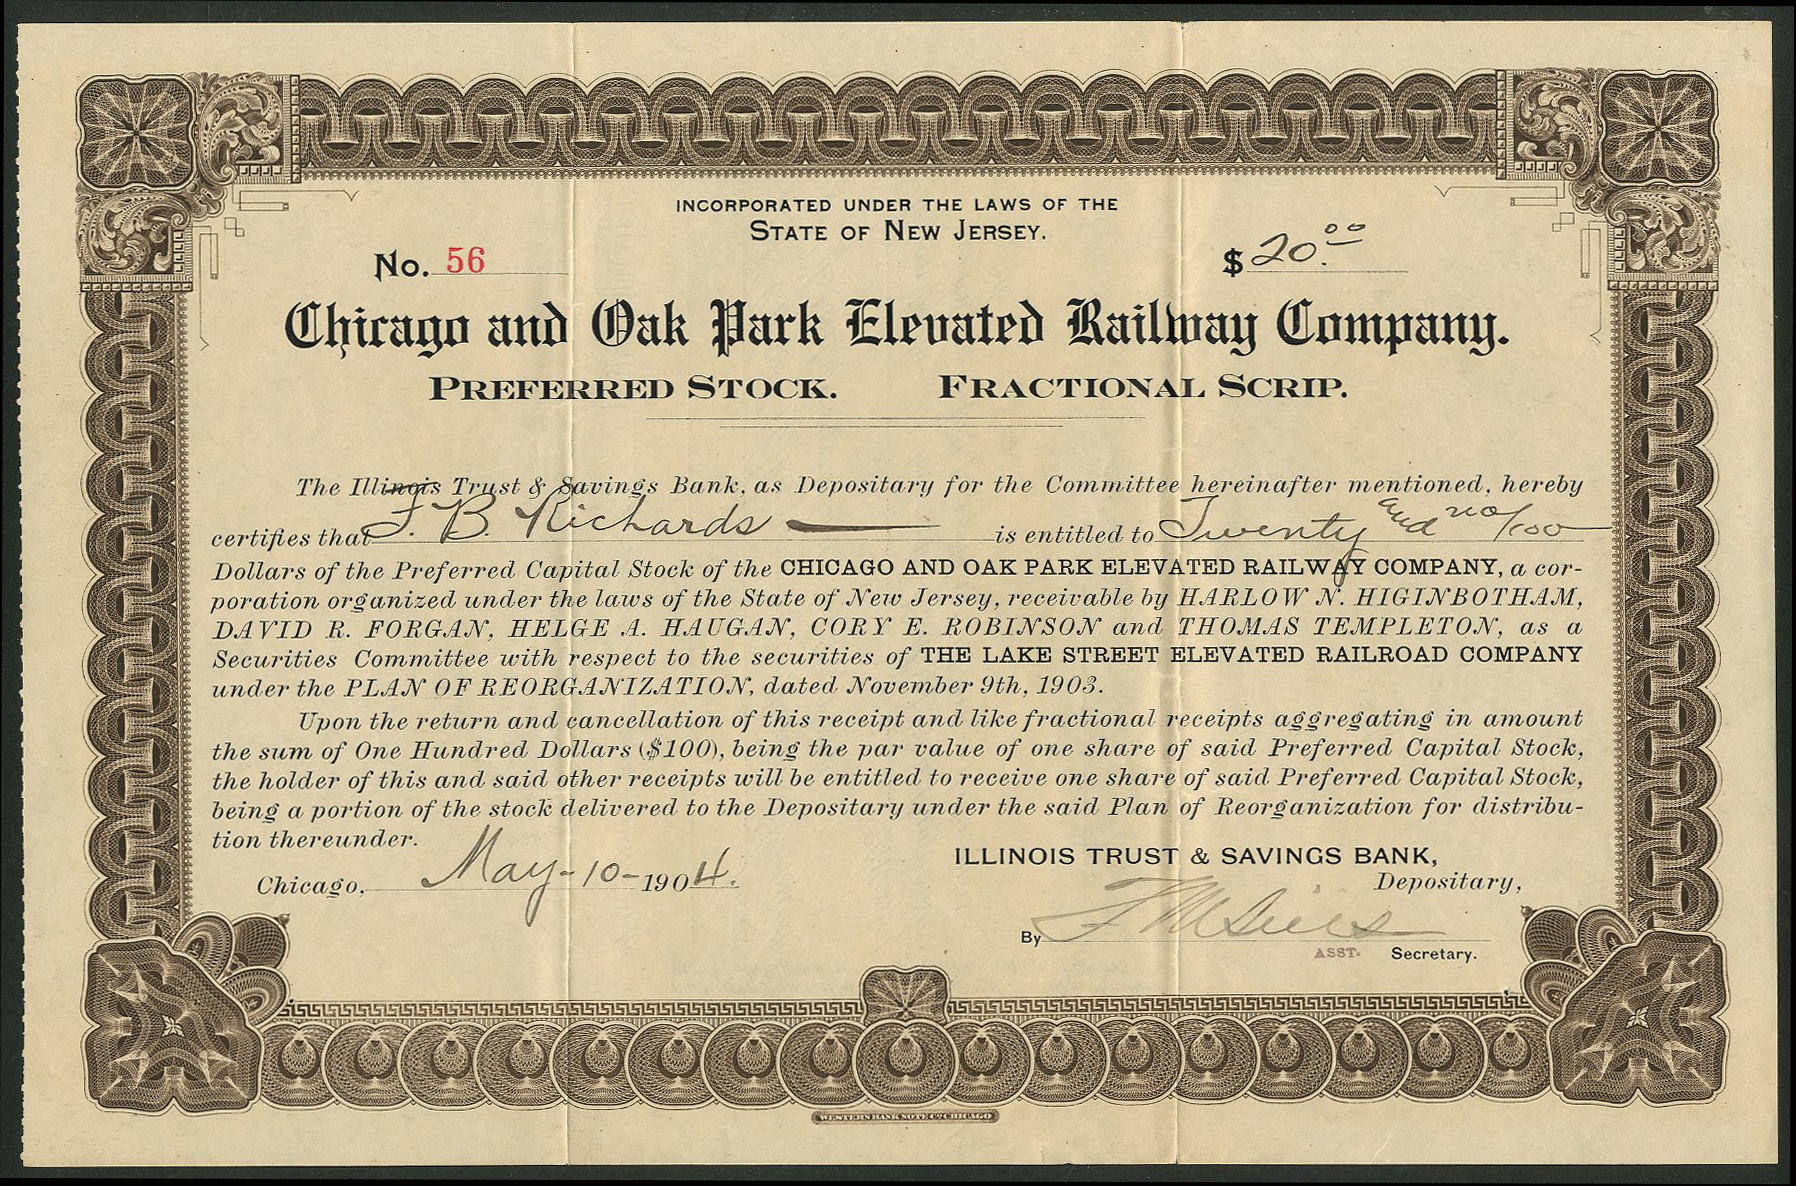 INCORPORATED UNDER THE LAWS OF THE
STATE OF NEW JERSEY.
No. 56
$ 20.00
Chicago and Oak Park Elevated Railway Company.
PREFERRED STOCK. FRACTIONAL SCRIP.
The Illinois Trust & Savings Bank, as Depositary for the Committee hereinafter mentioned, hereby
certifies that F. B. Richards is entitled to Twenty and no/100
Dollars of the Preferred Capital Stock of the CHICAGO AND OAK PARK ELEVATED RAILWAY COMPANY, a cor-
poration organized under the laws of the State of New Jersey, receivable by HARLOW N. HIGINBOTHAM,
DAVID R. FORGAN, HELGE A. HAUGAN, CORY E. ROBINSON and THOMAS TEMPLETON, as a
Securities Committee with respect to the securities of THE LAKE STREET ELEVATED RAILROAD COMPANY
under the PLAN OF REORGANIZATION, dated November 9th, 1903.
Upon the return and cancellation of this receipt and like fractional receipts aggregating in amount
the sum of One Hundred Dollars ($100), being the par value of one share of said Preferred Capital Stock,
the holder of this and said other receipts will be entitled to receive one share of said Preferred Capital Stock,
being a portion of the stock delivered to the Depositary under the said Plan of Reorganization for distribu-
tion thereunder.
Chicago, May-10-1904.
ILLINOIS TRUST & SAVINGS BANK,
Depositary,
By
ASST. Secretary.
WESTERN BANK NOTE CO. CHICAGO